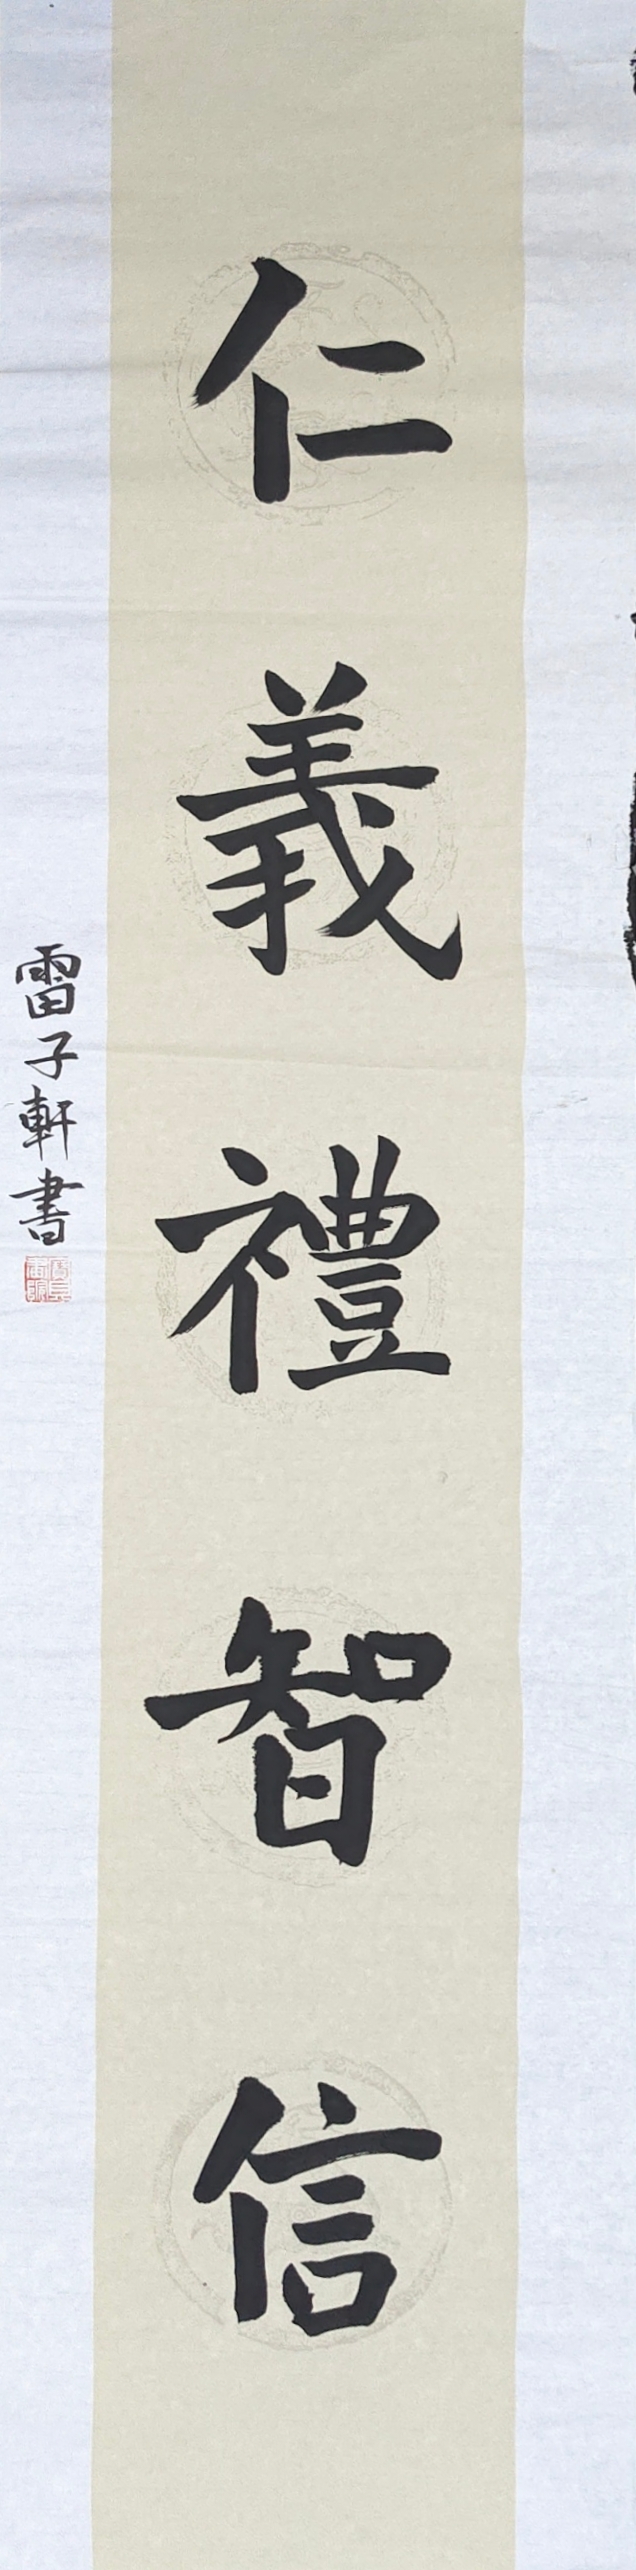 仁義禮智信
雷子軒書